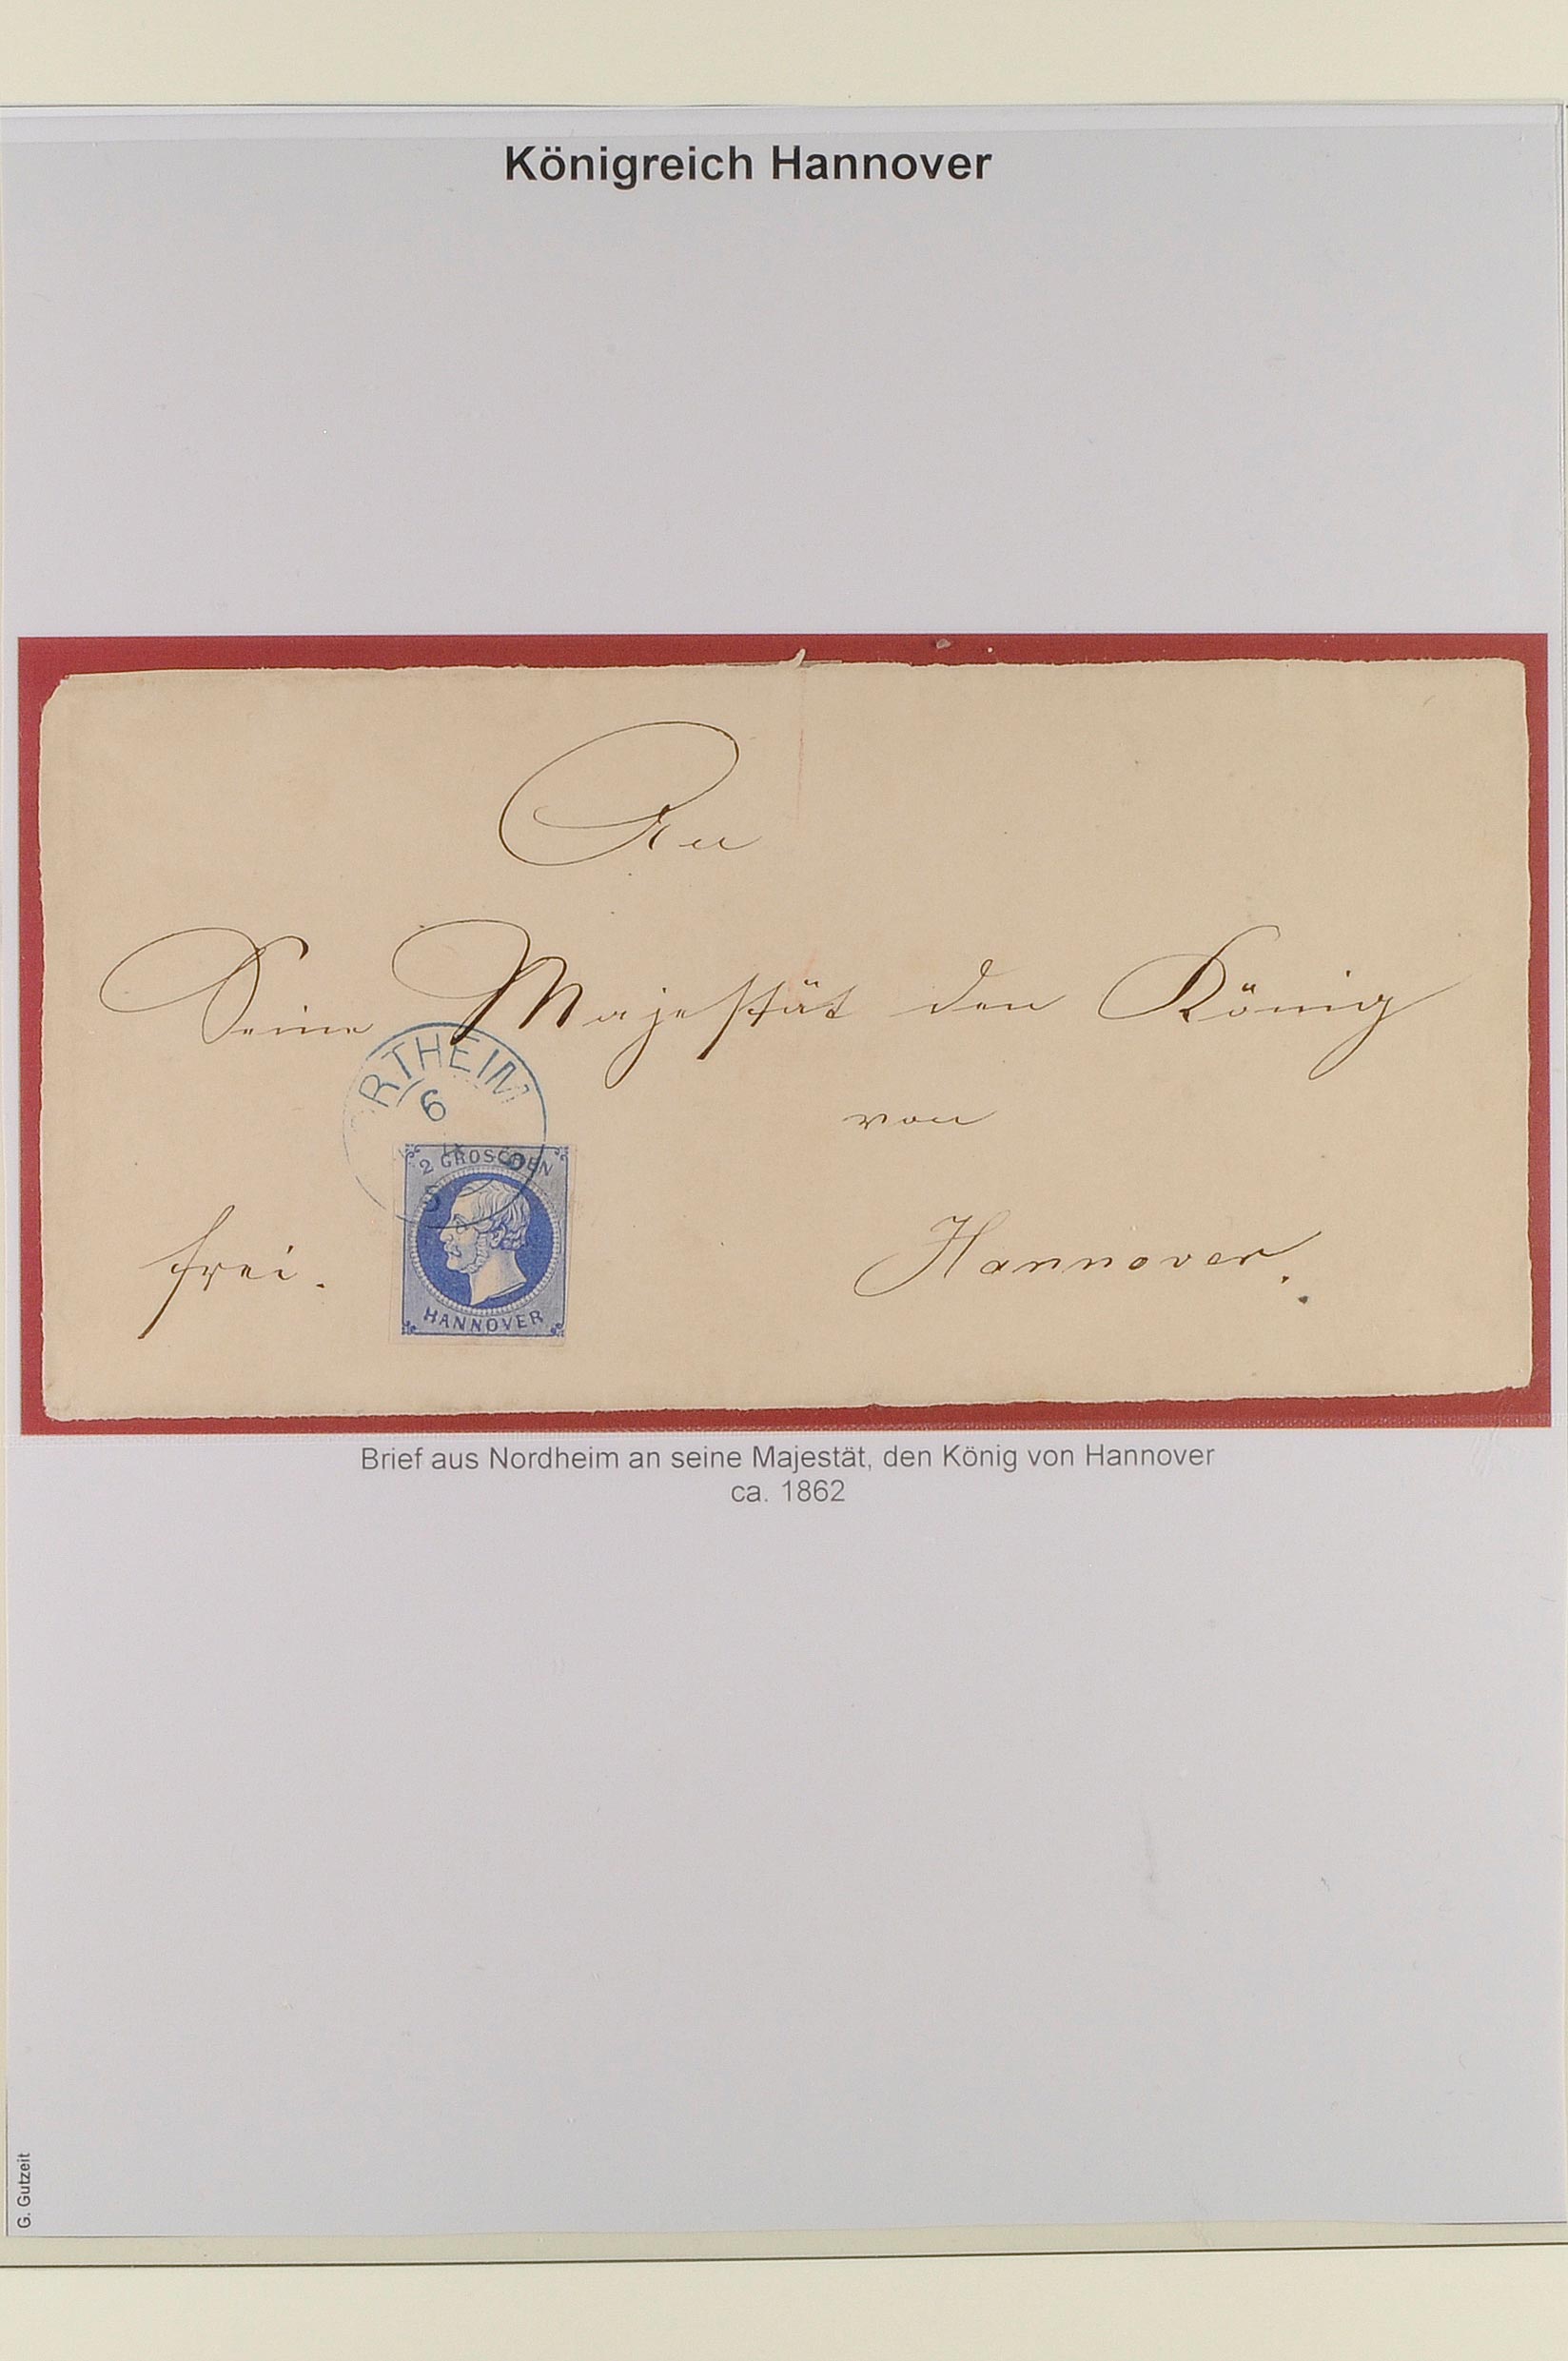 Königreich Hannover
An
Seine Majestät den König
von
Hannover.
frei.
RTHEIM
6
2 GROSCHEN
HANNOVER
Brief aus Nordheim an seine Majestät, den König von Hannover
ca. 1862
G. Gutzeit